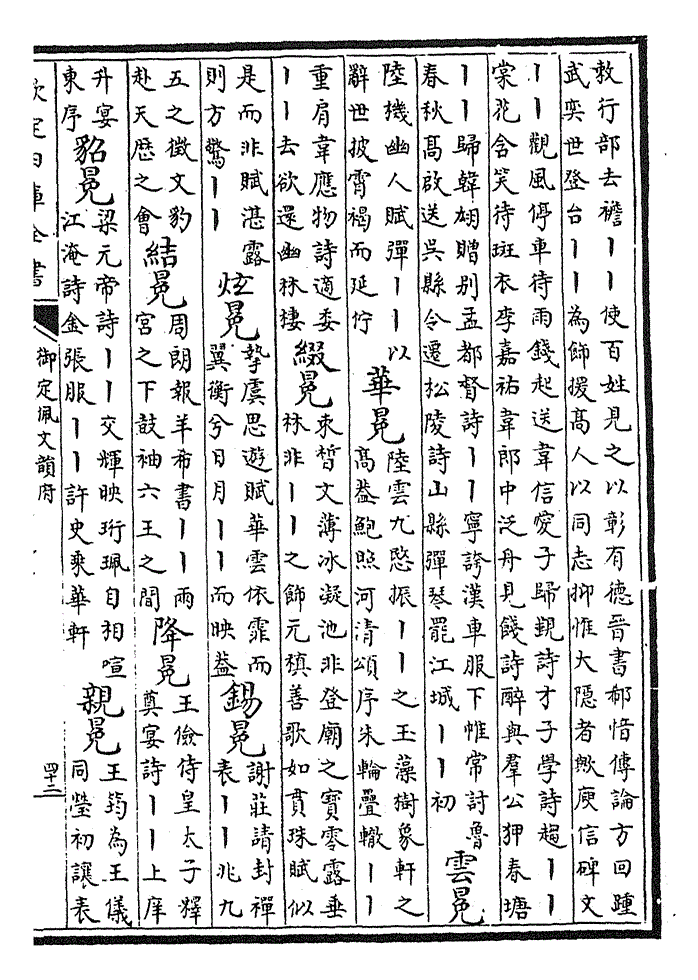 敕行部去襜丨丨使百姓見之以彰有德晉書郗愔傳論方回踵
武奕世登台丨丨為飾援髙人以同志抑惟大隠者歟庾信碑文
丨丨觀風停車待雨錢起送韋信愛子歸覲詩才子學詩趨丨丨
棠花含笑待斑衣李嘉祐韋郎中泛舟見餞詩醉與羣公狎春塘
丨丨歸韓翃贈别孟都督詩丨丨寧誇漢車服下帷常討魯
春秋髙啟送呉縣令遷松陵詩山縣彈琴罷江城丨丨初
雲冕
陸機幽人賦彈丨丨以
辭世披霄褐而延佇
華冕
陸雲九愍振丨丨之玉藻樹象軒之
髙葢鮑照河清頌序朱輪疊轍丨丨
重肩韋應物詩適委
丨丨去欲還幽林棲
綴冕
束晳文薄冰凝池非登廟之寳零露垂
林非丨丨之飾元稹善歌如貫珠賦似
是而非賦湛露
則方驚丨丨
炫冕
摯虞思遊賦華雲依霏而
翼衡兮日月丨丨而映葢
錫冕
謝莊請封禪
表丨丨兆九
五之徵文豹
赴天厯之會
結冕
周朗報羊布書丨丨兩
宮之下鼓袖六王之間
降冕
王儉侍皇太子釋
奠宴詩丨丨上庠
升宴
東序
貂冕
梁元帝詩丨丨交輝映珩珮自相喧
江淹詩金張服丨丨許史乘華軒
親冕
王筠為王儀
同瑩初讓表
欽定四庫全書
御定佩文韻府
四十二